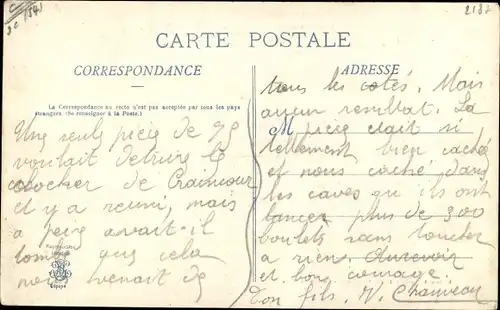 2182
CARTE POSTALE
CORRESPONDANCE
La Correspondance au recto n'est pas acceptée par tous les pays
étrangers. (Se renseigner à la Poste.)
Une seule pièce de 90
voulait detruire le
clocher de Craincour
et y a reuni, mais
a peine avait-il
tomber que cela
nous venait de
ADRESSE
tous les cotés. Mais
aucun resultat. La
M
pièce etait si
tellement bien cachée
et nous caché dans
les caves qu'ils ont
lancer plus de 300
boulets sans toucher
a rien. Aurevoir
et bon courage.
Ton fils. V. Chauveau